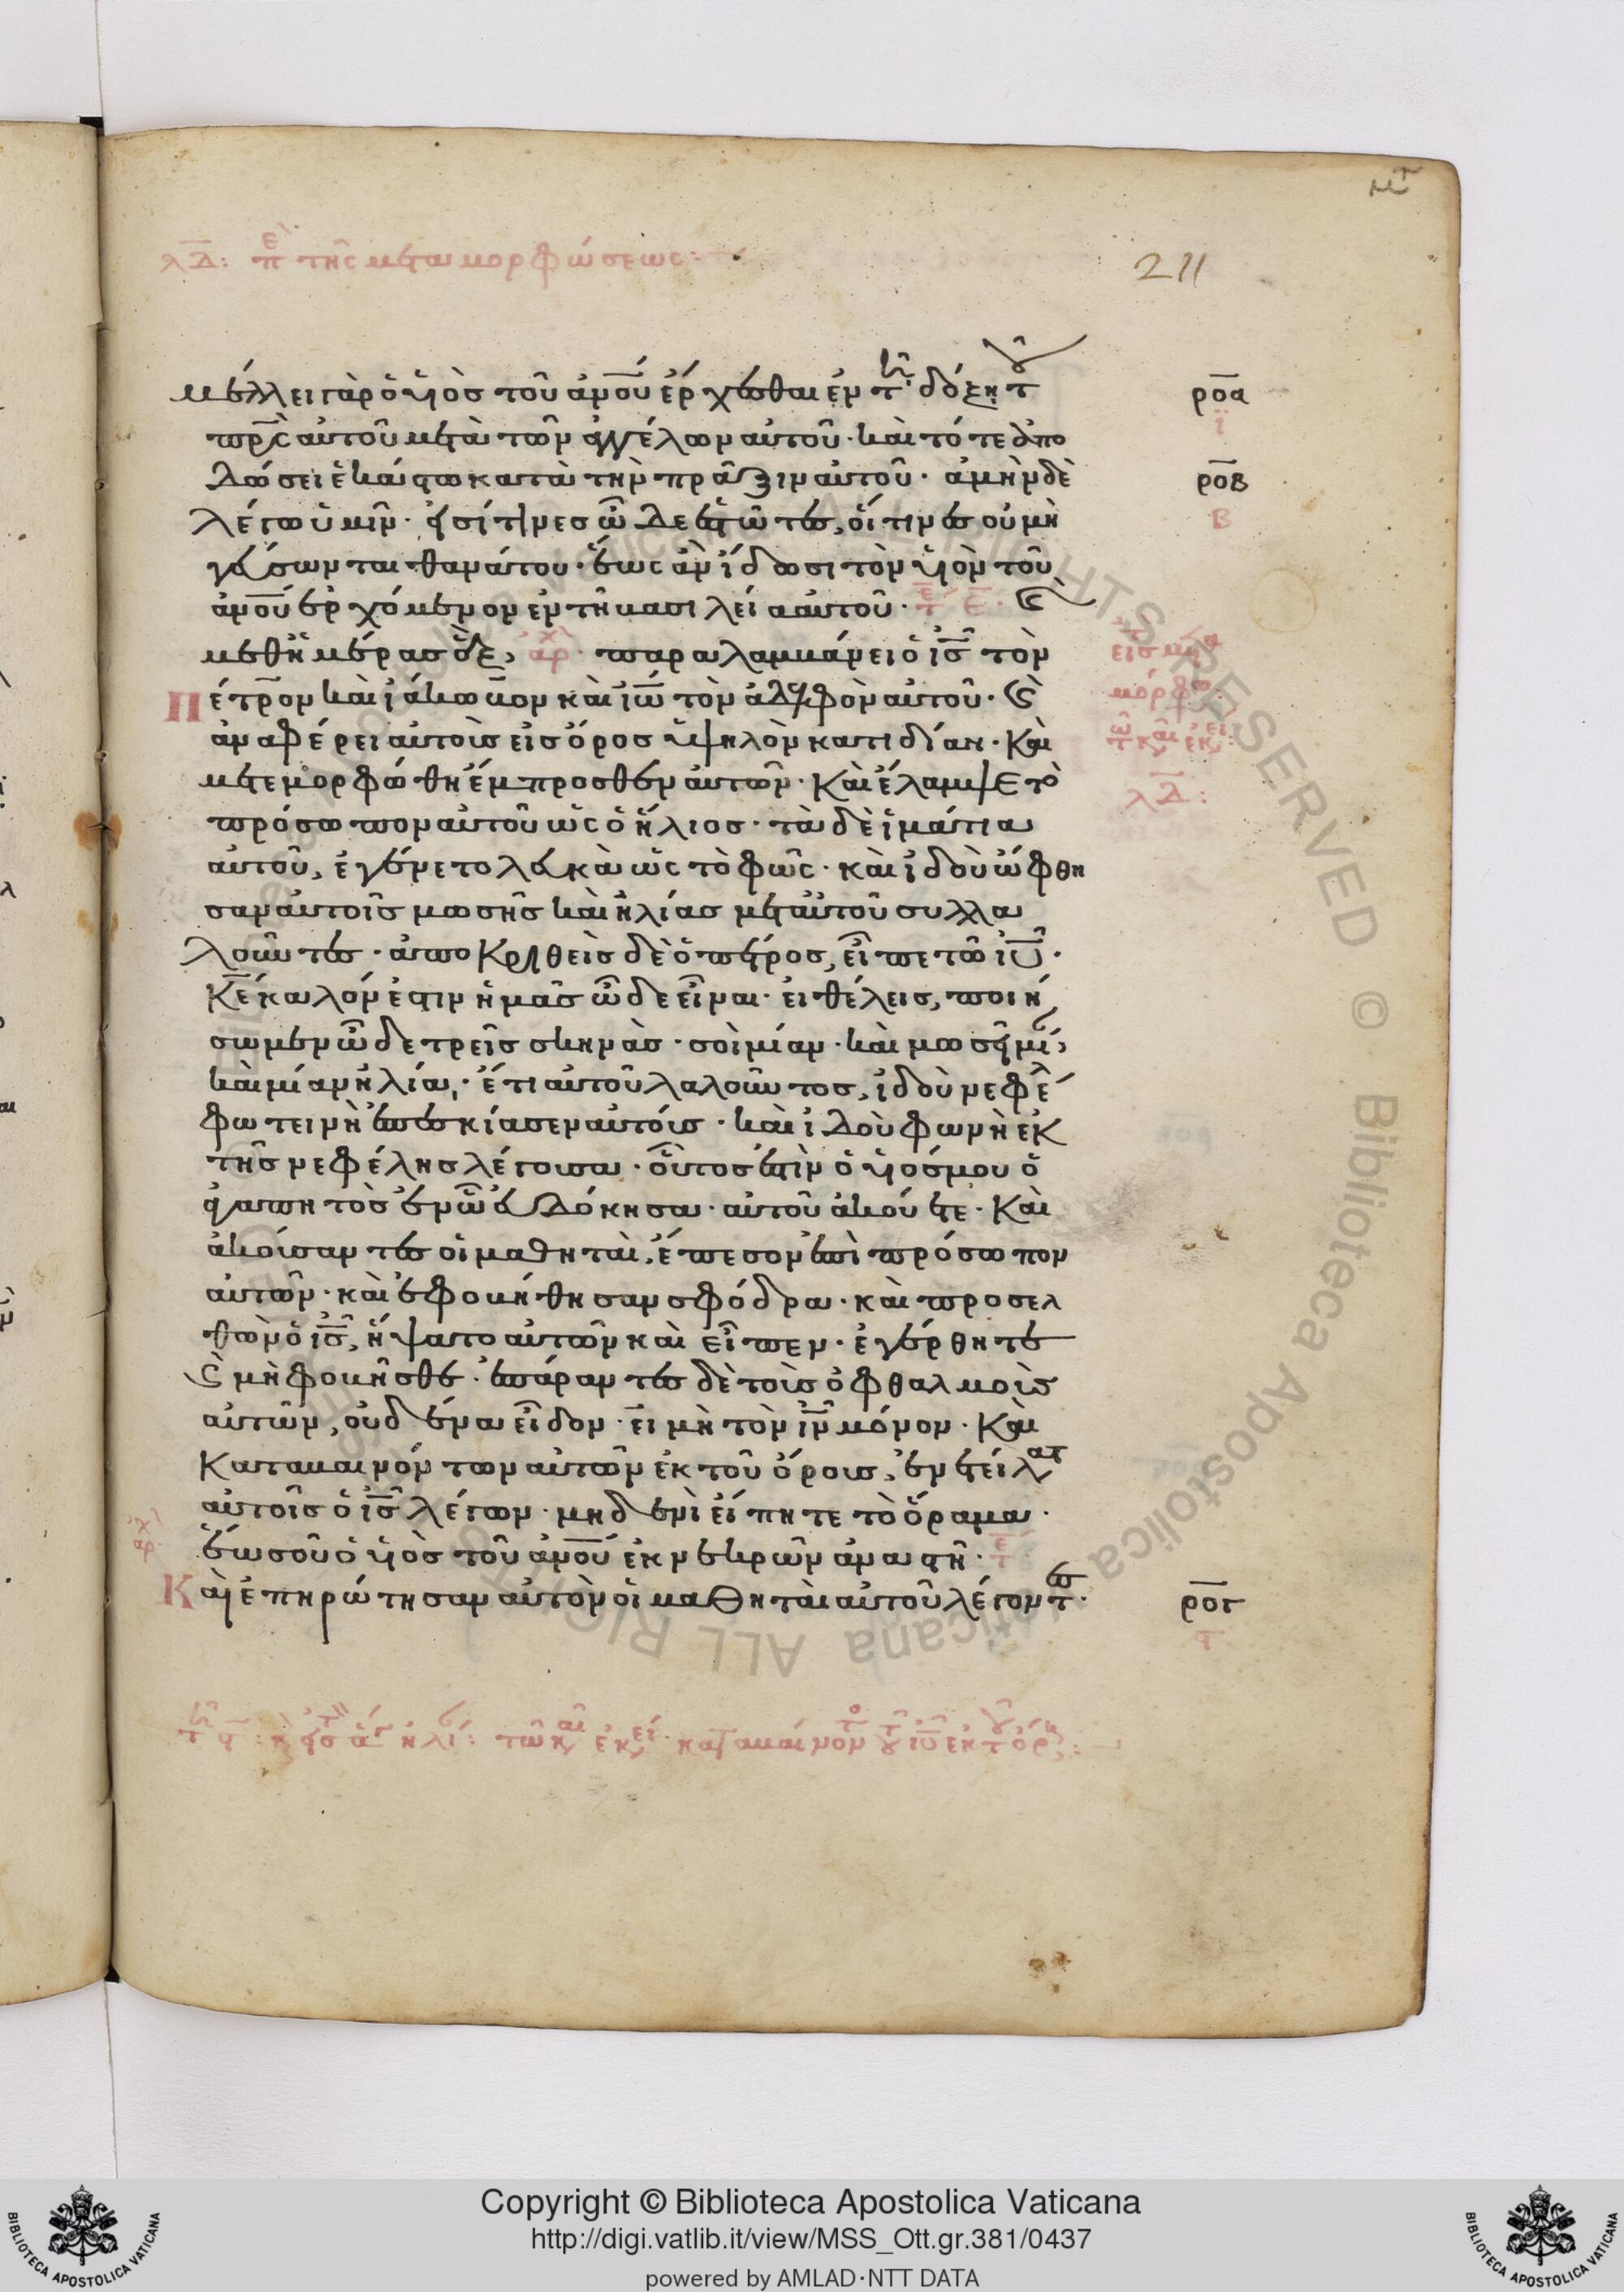 λδ: πε της μεταμορφώσεως:
211
μέλλει γὰρ ὁ υἱὸς τοῦ ἀνου ἔρχεσθαι ἐν τῆ δόξη τοῦ
πρς αὐτοῦ μετὰ τῶν ἀγγέλων αὐτοῦ· καὶ τότε ἀπο
δώσει ἑκάστω κατὰ τὴν πρᾶξιν αὐτοῦ· ἀμὴν δὲ
λέγω ὑμῖν· εἰσί τινες ὧδε ἑστῶτες, οἵτινες οὐ μὴ
γεύσωνται θανάτου· ἕως ἂν ἴδωσι τὸν υἱὸν τοῦ
ἀνου ἐρχόμενον ἐν τῆ βασιλεία αὐτοῦ· καὶ
μεθ ἡμέρας ἓξ, ἀρχ παραλαμβάνει ὁ ις τὸν
Πέτρον καὶ ἰάκωβον καὶ ιω τὸν ἀδελφὸν αὐτοῦ· καὶ
ἀναφέρει αὐτοὺς εἰς ὄρος ὑψηλὸν κατιδίαν· Καὶ
μετεμορφώθη ἔμπροσθεν αὐτῶν· Καὶ ἔλαμψε τὸ
πρόσωπον αὐτοῦ ὡς ὁ ἥλιος· τὰ δὲ ἱμάτια
αὐτοῦ, ἐγένετο λευκὰ ὡς τὸ φῶς· καὶ ἰδοὺ ὤφθη
σαν αὐτοῖς μωσῆς καὶ ἠλίας μεταὐτοῦ συλλα
λοῦντες· ἀποκριθεὶς δὲ ὁ πέτρος, εἶπε τῶ ιυ·
Κε καλόν ἐστιν ἡμᾶς ὧδε εἶναι· εἰ θέλεις, ποιή
σωμεν ὧδε τρεῖς σκηνὰς· σοὶ μίαν· καὶ μωσῆ μί,
καὶ μίαν ἠλία· ἔτι αὐτοῦ λαλοῦντος, ἰδοὺ νεφέλ
φωτεινὴ ἐπεσκίασεν αὐτούς· καὶ ἰδοὺ φωνὴ ἐκ
τῆς νεφέλης λέγουσα· οὗτός ἐστιν ὁ υἱός μου ὁ
ἀγαπητὸς ἐν ὧ εὐδόκησα· αὐτοῦ ἀκούετε· Καὶ
ἀκούσαντες οἱ μαθηταὶ, ἔπεσον ἐπὶ πρόσωπον
αὐτῶν· καὶ ἐφοβήθησαν σφόδρα· καὶ προσελ
θὼν ὁ ις, ἥψατο αὐτῶν καὶ εἶπεν· ἐγέρθητε
καὶ μὴ φοβῆσθε· ἐπάραντες δὲ τοὺς ὀφθαλμοὺς
αὐτῶν, οὐδένα εἶδον· εἰ μὴ τὸν ιν μόνον· Καὶ
Καταβαινόντων αὐτῶν ἐκ τοῦ ὄρους, ἐνετείλατ
αὐτοῖς ὁ ις λέγων· μηδενὶ εἴπητε τὸ ὅραμα·
ἕως οὗ ὁ υἱὸς τοῦ ἀνου ἐκ νεκρῶν ἀναστῆ·
Καὶ ἐπηρώτησαν αὐτὸν οἱ μαθηταὶ αὐτοῦ λέγοντες·
ροα
ι
ροβ
β
εἰς μετα
μόρφω
λδ:
ρογ
Copyright © Biblioteca Apostolica Vaticana
http://digi.vatlib.it/view/MSS_Ott.gr.381/0437
powered by AMLAD·NTT DATA